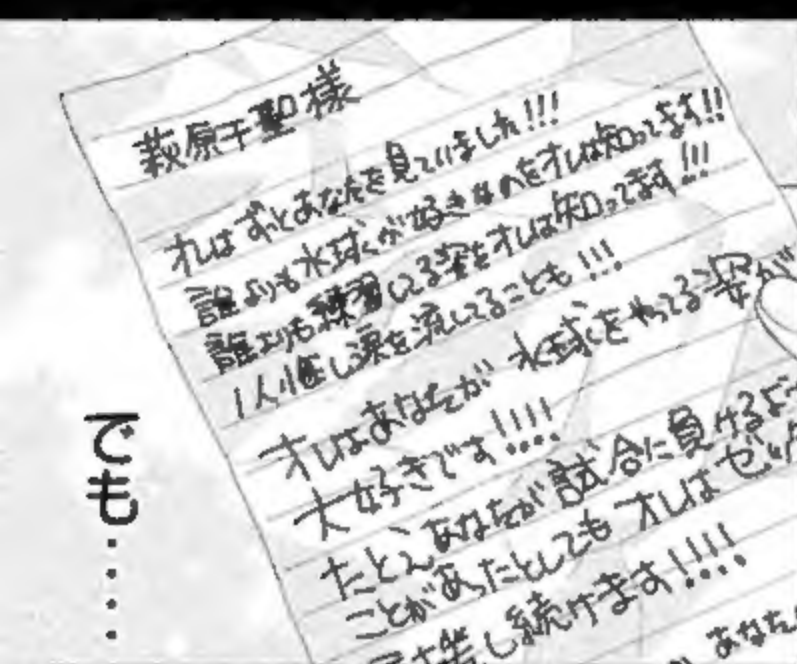 萩原千聖様
オレはずっとあなたを見ていました!!!
誰よりも水球が好きなのをオレは知ってます!!
誰よりも練習してる姿をオレは知ってます!!!
1人悔し涙を流してることも!!!
オレはあなたが水球をやってる姿が
大好きです!!!!
たとえあなたが試合に負けるよ
ことがあったとしてもオレはゼッ
し続けます!!!!
あなた
でも・・・・・